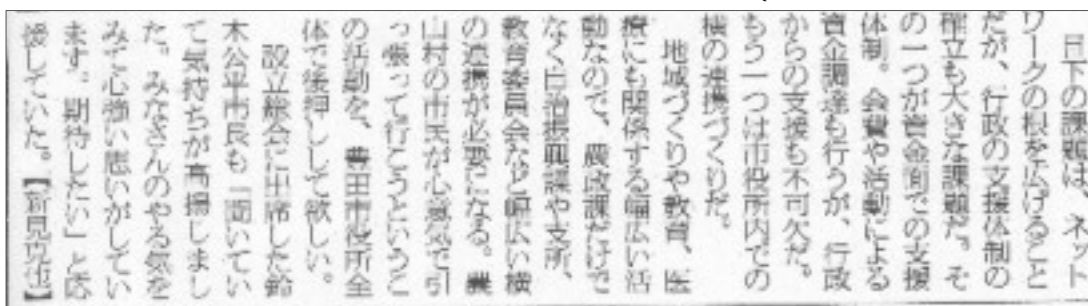 目下の課題は、ネット
ワークの根を広げること
だが、行政の支援体制の
確立も大きな課題だ。そ
の一つが資金面での支援
体制。会費や活動による
資金調達も行うが、行政
からの支援も不可欠だ。
もう一つは市役所内での
横の連携づくりだ。
地域づくりや教育、医
療にも関係する幅広い活
動なので、農政課だけで
なく自治振興課や支所、
教育委員会など幅広い横
の連携が必要になる。農
山村の市民が心意気で引
っ張って行こうというこ
の活動を、豊田市役所全
体で後押しして欲しい。
設立総会に出席した鈴
木公平市長も「聞いてい
て気持ちが高揚しまし
た。みなさんのやる気を
みて心強い思いがしてい
ます。期待したい」と応
援していた。【新見克也】